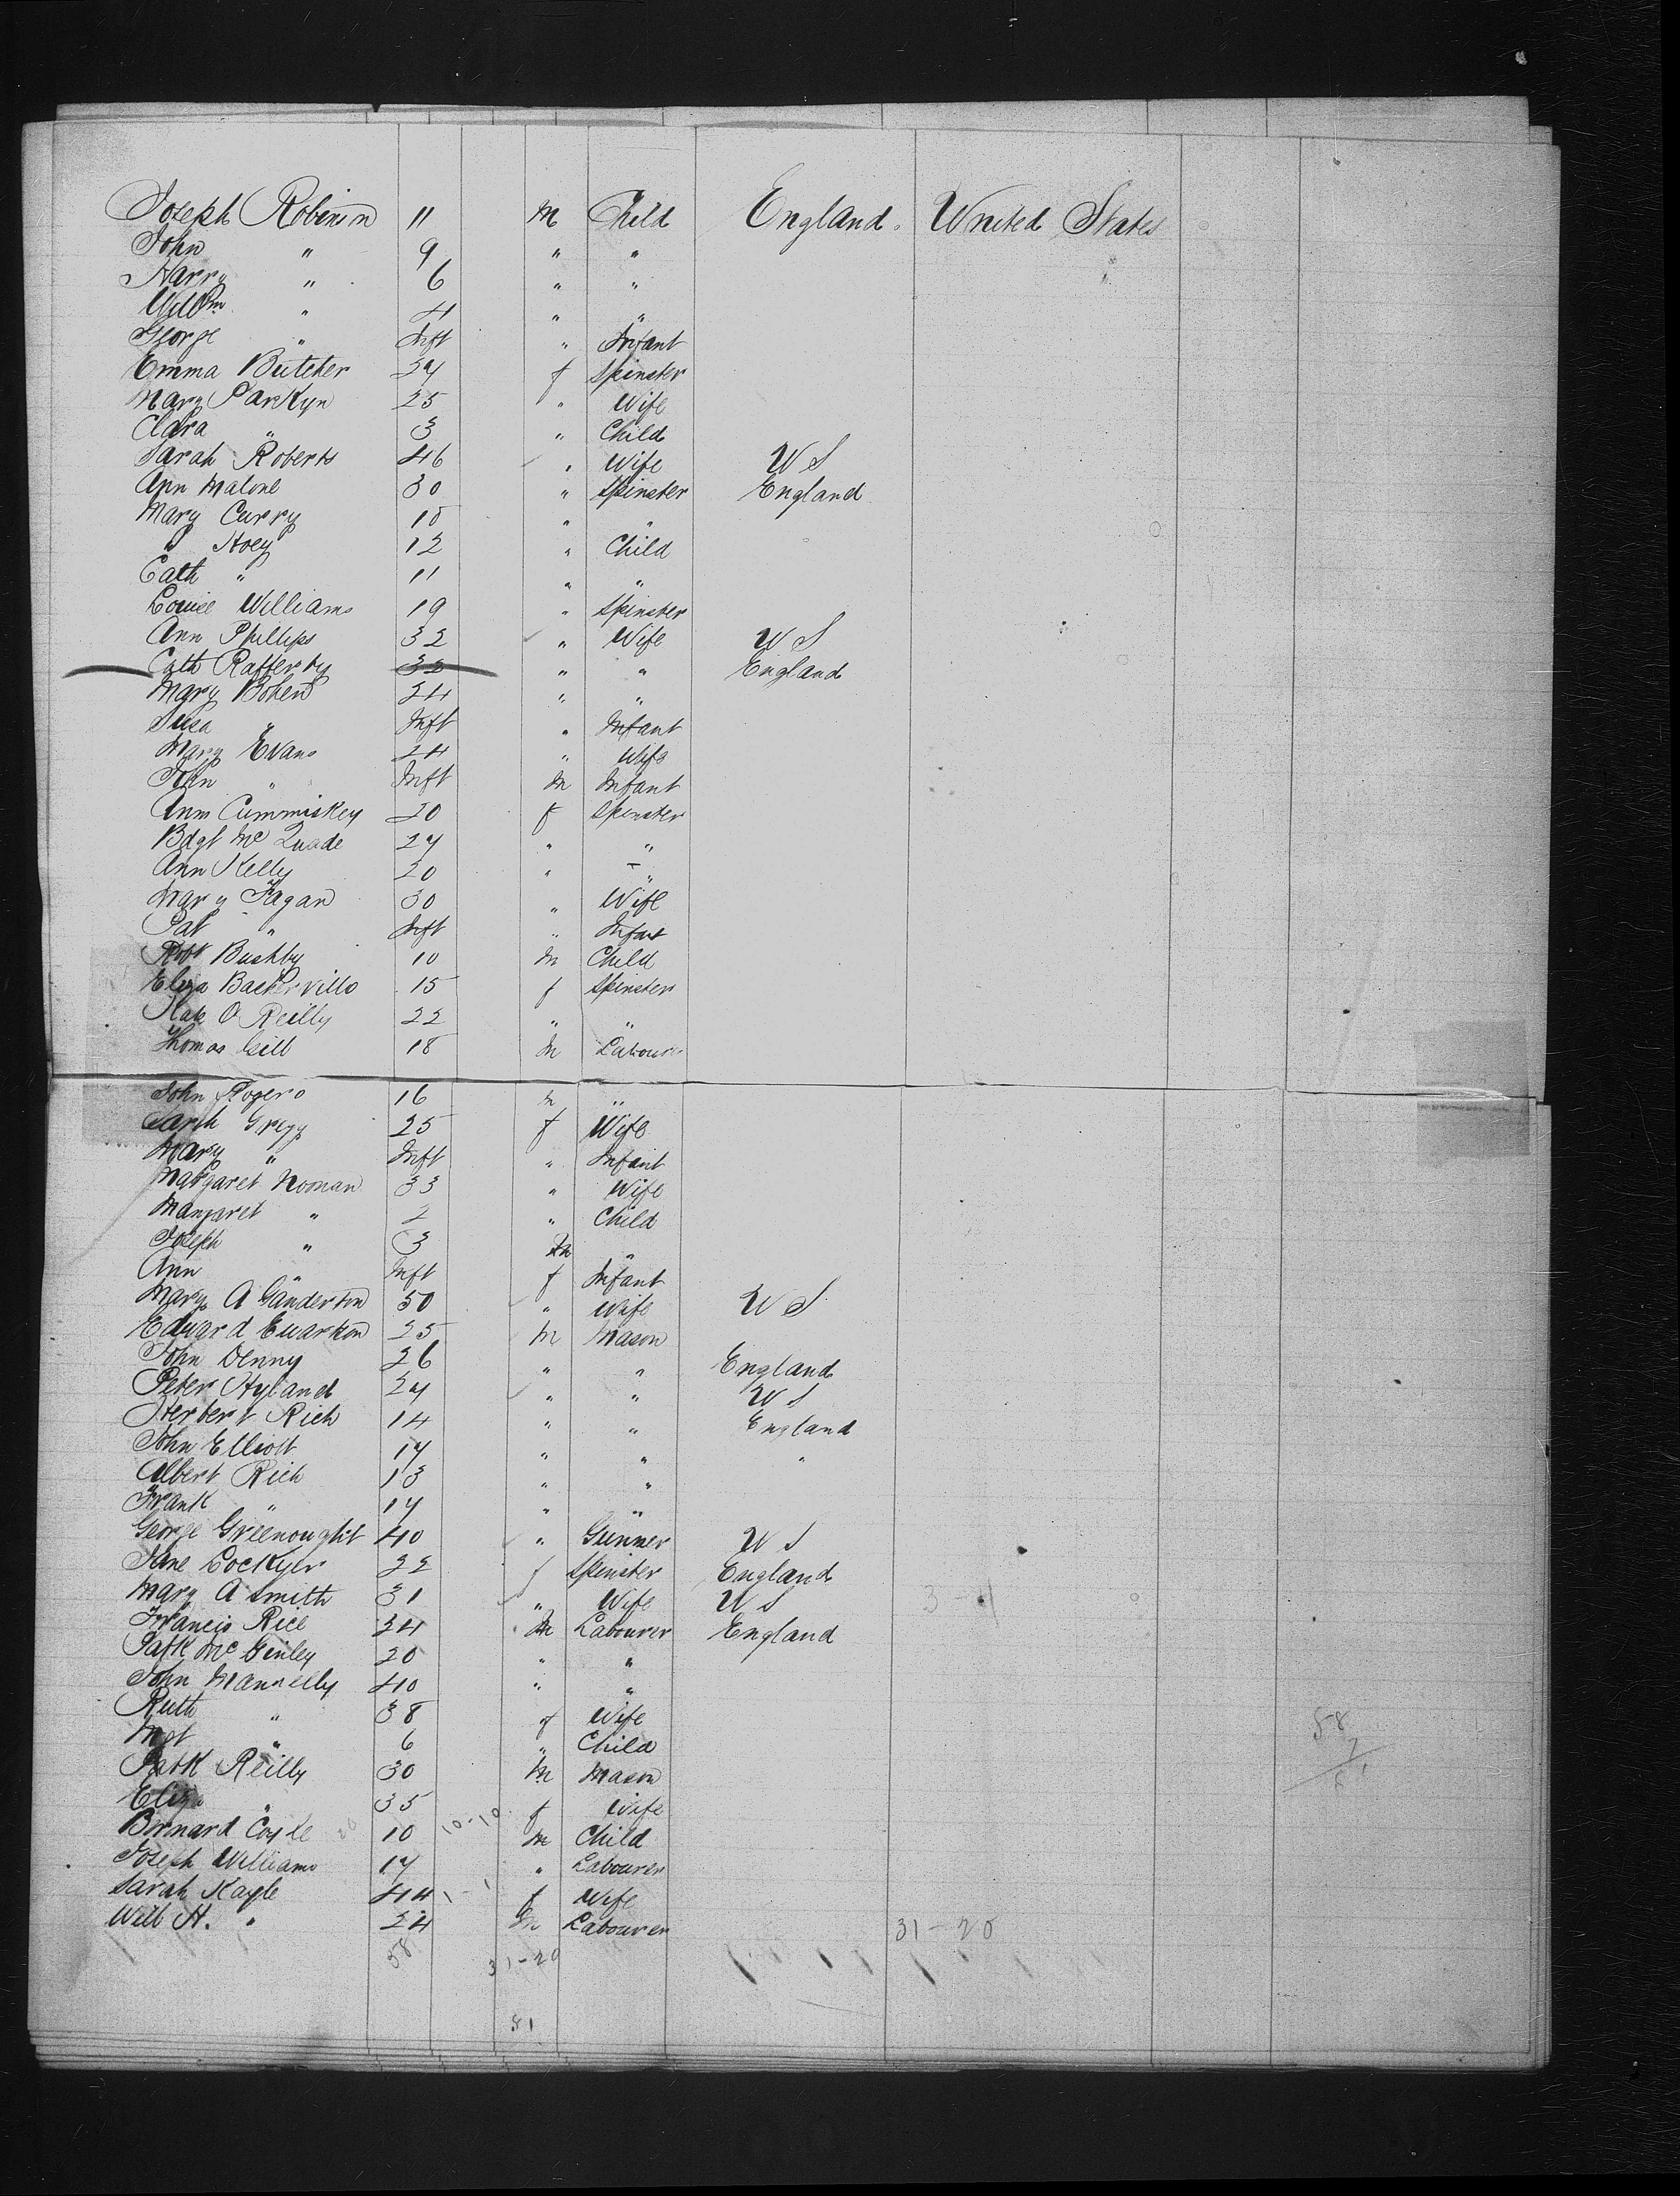 Joseph Robinson 11 M Child England. United States
John " 9 " "
Harry " 6 " "
Willm " 4 " "
George " Inft " Infant
Emma Butcher 24 f Spinster
Mary Parkyn 25 " Wife
Clara " 3 " Child
Sarah Roberts 46 " Wife U S
Ann Malone 30 " Spinster England
Mary Curry 18 " "
" Hoey 12 " Child
Cath " 11 " "
Louise Williams 19 " Spinster
Ann Phillips 32 " Wife U S
Cath Rafferty 32 " " England
Mary Bohen 24 " "
Susa " Inft " Infant
Mary Evans 24 " Wife
John " Inft M Infant
Ann Cummiskey 20 f Spinster
Bdgt Mc Quade 24 " "
Ann Kelly 20 " "
Mary Fagan 30 " Wife
Pat " Inft " Infant
Robt Bushby 10 M Child
Eliza Baskerville 15 f Spinster
Kate O Reilly 22 " "
Thomas Gill 18 M Labourer
John Rogers 16 M "
Sarah Gregg 25 f Wife
Mary " Inft " Infant
Margaret Noonan 33 " Wife
Margaret " 2 " Child
Joseph " 3 M "
Ann " Inft f Infant
Mary A Ganderton 50 " Wife U S
Edward 25 M Mason
John Denny 26 " " England
Peter Hyland 24 " " U S
Herbert Rich 14 " " England
John Elliott 17 " " "
Albert Rich 13 " "
Frank " 17 " "
George Greenought 40 " Gunner U S
Jane Lockyer 22 f Spinster England
Mary A Smith 31 " Wife U S
Francis Rice 24 M Labourer England
Patk Mc Ginley 20 " "
John Mannelly 40 " "
Ruth " 38 f Wife
Mgt " 6 " Child
Patk Reilly 30 M Mason
Eliza " 35 f Wife
Bernard Coyle 10 10-10 M Child
Joseph Williams 17 " Labourer
Sarah Kayle 44 1-1 f Wife
Will H. " 24 M Labourer 31-20
58 31-20
81